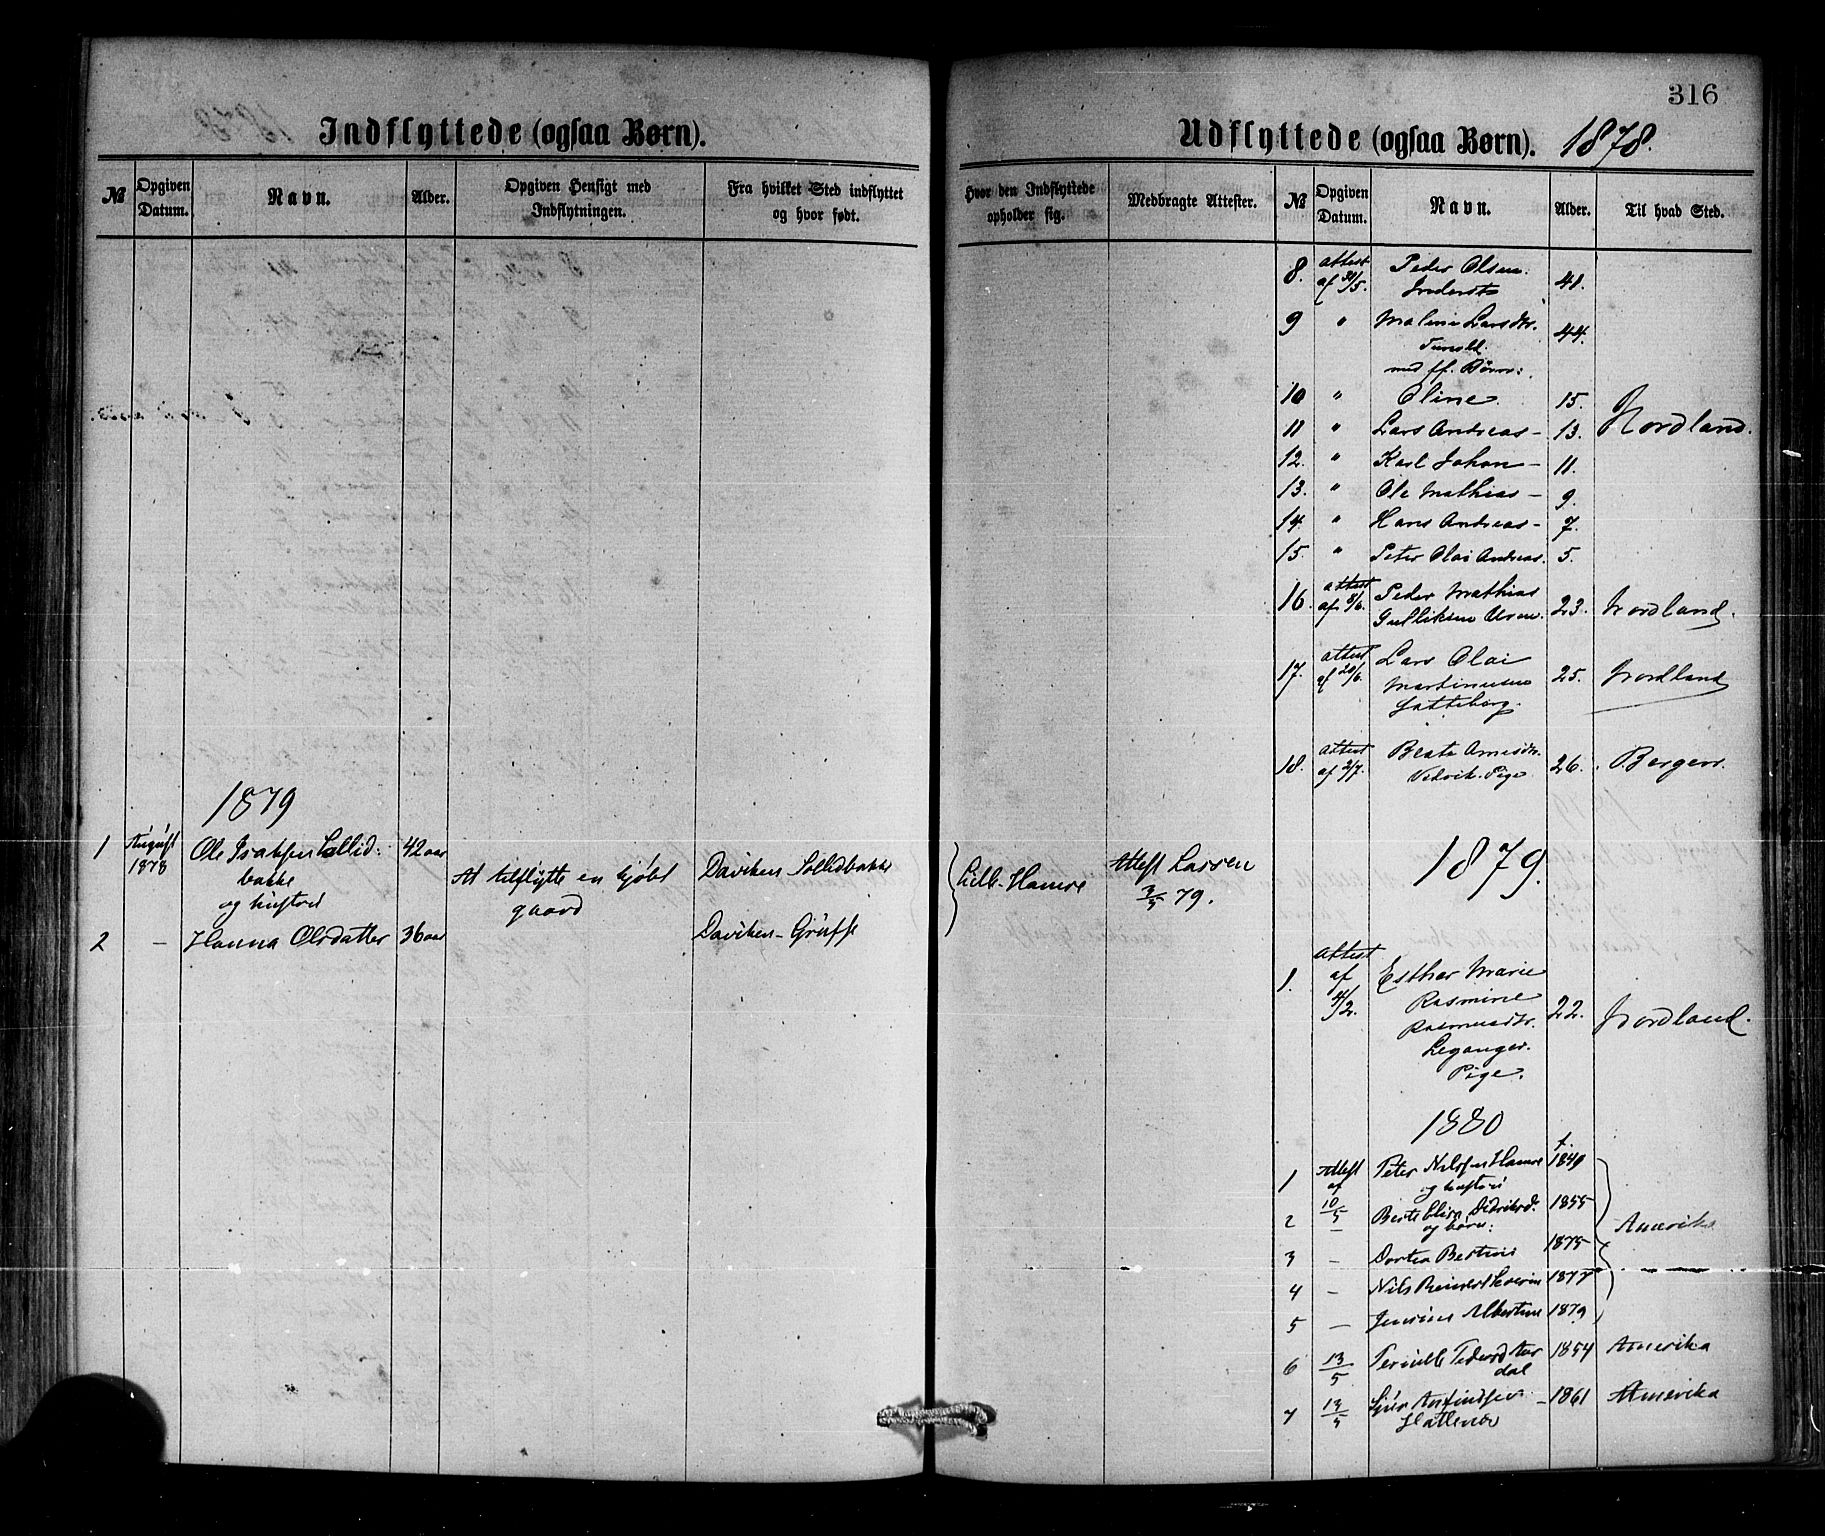 316
Indflyttede (ogsaa Børn).
№
Opgiven Datum.
Navn.
Alder.
Opgiven Hensigt med Indflytningen.
Fra hvilket Sted indflyttet og hvor født.
1879
1 August 1878 Ole Isaksen Sollid: 42 aar
bakke
og hustru
At tilflytte en kjøbt
gaard
Daviken Sollidbakke
2 — Hanna Olsdatter 36 aar
Daviken -
Udflyttede (ogsaa Børn). 1878.
Hvor den Indflyttede opholder sig.
Medbragte Attester.
№
Opgiven Datum.
Navn.
Alder.
Til hvad Sted.
Lille-Hamre
Attest Larsen
3/5 79.
8. Attest af 31/5. Peder Olsen 48.
9 " Maline Larsdtr. 44.
med ff. Børn:
10 " Oline 15. Nordland.
11 " Lars Andreas - 13.
12. " Karl Johan - 11.
13. " Ole Mathias - 9.
14. " Hans Andreas - 7.
15. " Peter Olai Andreas. 5.
16. Attest af 8/6. Peder Mathias 23. Nordland.
17. Attest af 28/6. Lars Olai 25. Nordland
Martinusen
18. Attest af 2/7. Beate Arnesdtr. 26. Bergen.
Pige
1879.
1. Attest af 4/2. Esther Marie
Rasmine 22. Nordland.
Rasmusdtr.
Leganger.
Pige.
1880
f.
1 Attest af 10/5 Peter Nilsen Hamre 1849
og hustru
2 — Berte Didriksd. 1855
og børn: Amerika
3 — Dortea Bertine 1875
4 — Nils Reinert Severin 1877
5 — Jensine Albertine 1879
6 13/5 Pernille Pedersd. 1854 Amerika
dal
7 13/5 Sjur Anfindsen - 1861 Amerika